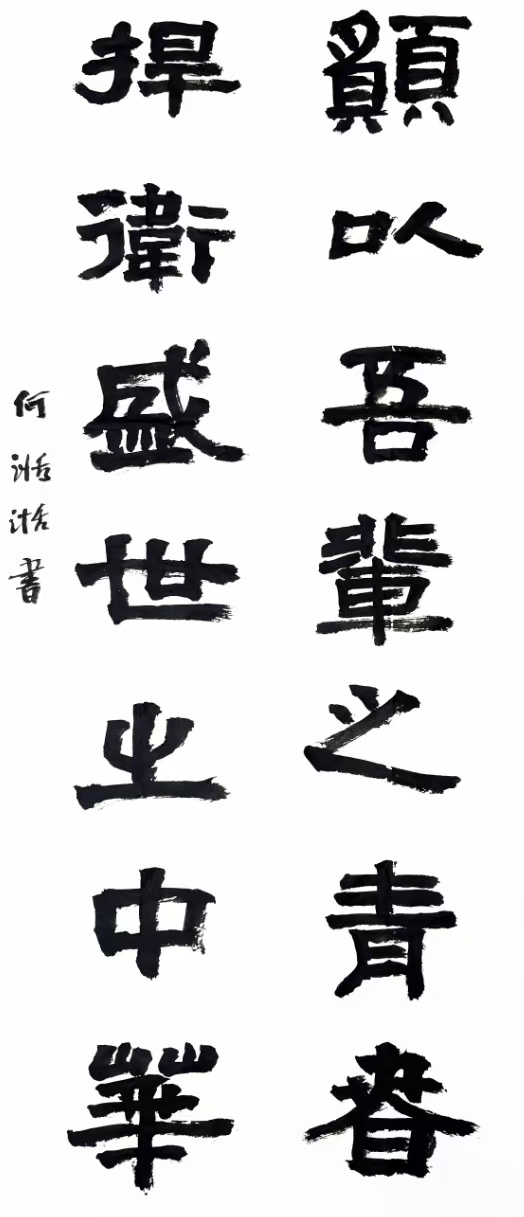 願以吾輩之青春
捍衛盛世之中華
何湉湉書